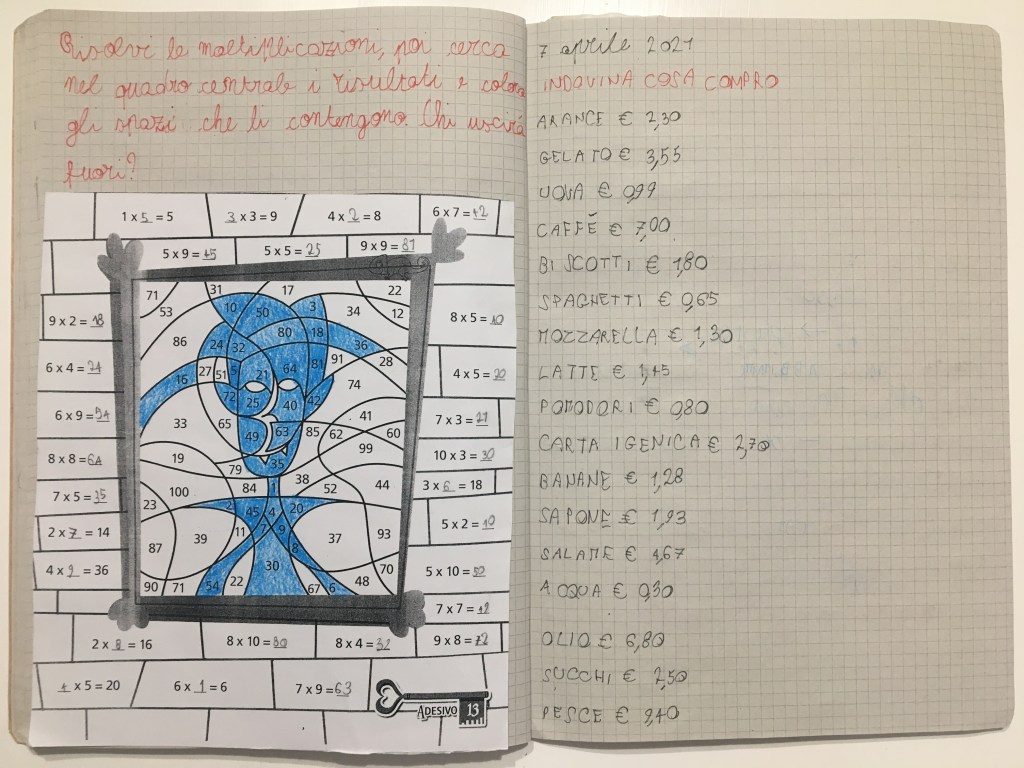 Risolvi le moltiplicazioni, poi cerca
nel quadro centrale i risultati e colora
gli spazi che li contengono. Chi uscirà
fuori?
1 x 5 = 5
3 x 3 = 9
4 x 2 = 8
6 x 7 = 42
5 x 9 = 45
5 x 5 = 25
9 x 9 = 81
9 x 2 = 18
8 x 5 =
6 x 4 = 24
4 x 5 = 20
6 x 9 = 54
7 x 3 = 21
8 x 8 = 64
10 x 3 = 30
7 x 5 = 35
3 x 6 = 18
2 x 7 = 14
5 x 2 = 10
4 x 9 = 36
5 x 10 = 50
7 x 7 =
2 x 8 = 16
8 x 10 = 80
8 x 4 = 32
9 x 8 = 72
4 x 5 = 20
6 x 1 = 6
7 x 9 = 63
71
31
17
22
53
10
50
3
34
12
86
24
32
80
18
36
91
28
15
27
51
5
21
64
81
74
72
25
40
42
33
65
49
63
85
62
41
60
99
19
79
35
84
1
38
52
44
100
23
2
45
4
20
87
39
11
7
9
8
37
93
70
90
71
54
22
30
67
6
48
ADESIVO 13
7 aprile 2021
INDOVINA COSA COMPRO
ARANCE € 2,30
GELATO € 3,55
UOVA € 0,99
CAFFÈ € 7,00
BISCOTTI € 1,80
SPAGHETTI € 0,65
MOZZARELLA € 1,30
LATTE € 1,45
POMODORI € 0,80
CARTA IGENICA € 2,70
BANANE € 1,28
SAPONE € 1,93
SALAME € 4,67
ACQUA € 0,30
OLIO € 6,80
SUCCHI € 2,50
PESCE € 9,40